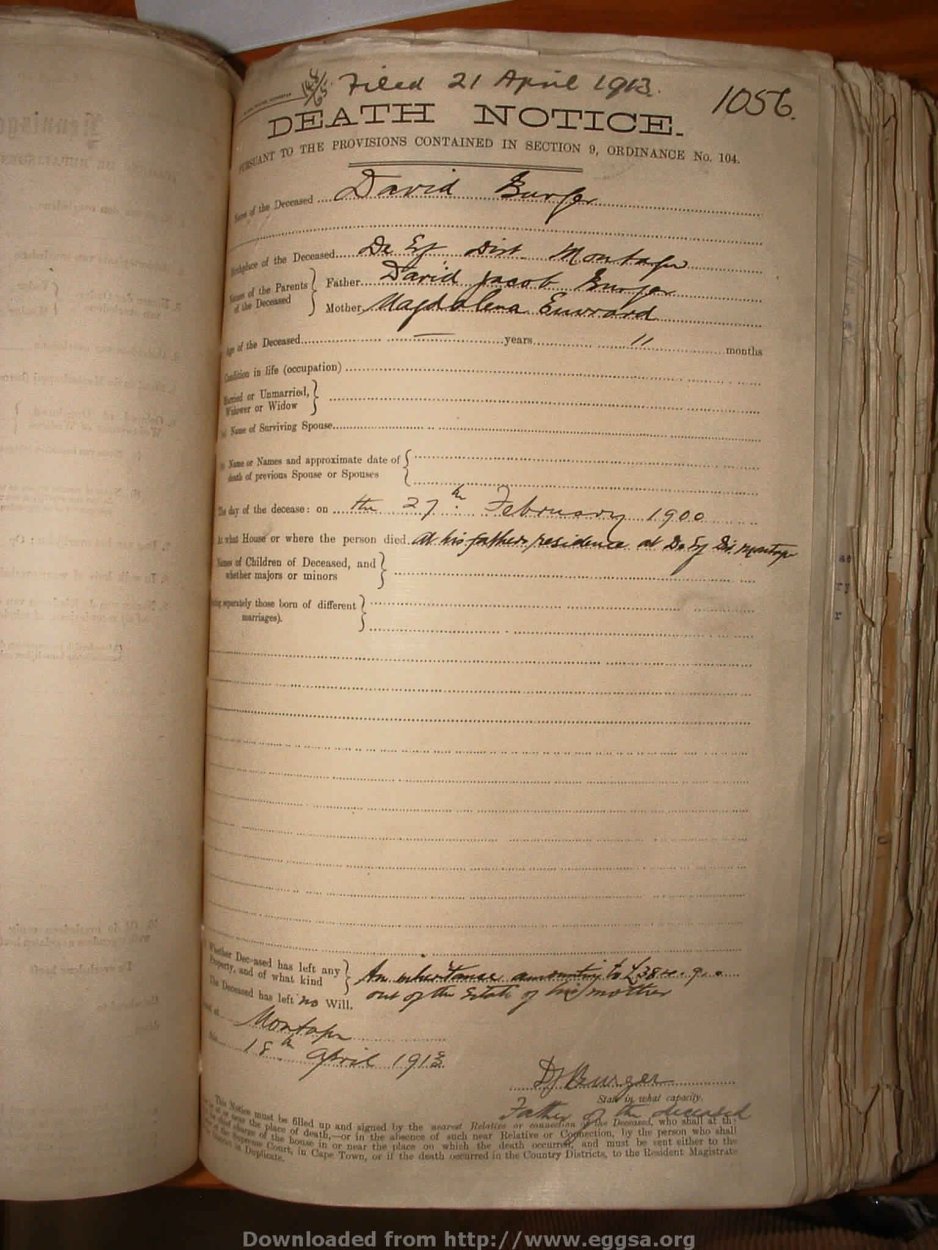 Filed 21 April 1913.
1056.
DEATH NOTICE.
PURSUANT TO THE PROVISIONS CONTAINED IN SECTION 9, ORDINANCE No. 104.
Name of the Deceased David Burger
Birthplace of the Deceased De Ey Dist. Montagu
Names of the Parents of the Deceased } Father David Jacob Burger
Mother Magdalena
Age of the Deceased — years 11 months
Condition in life (occupation)
Married or Unmarried, Widower or Widow }
Name of Surviving Spouse
Name or Names and approximate date of death of previous Spouse or Spouses {
The day of the decease: on the 27th February 1900
At what House or where the person died at his fathers residence at De Ey Dis. Montagu
Names of Children of Deceased, and whether majors or minors }
(Stating separately those born of different marriages). }
Whether Deceased has left any Property, and of what kind } An inheritance amounting to £384. 9. 0
out of the Estate of his mother
The Deceased has left no Will.
Dated at Montagu
18th April 1913
DJ Burger
State in what capacity.
Father of the deceased
This Notice must be filled up and signed by the nearest Relative or connection of the Deceased, who shall at the
or near the place of death,—or in the absence of such near Relative or Connection, by the person who shall
charge of the house in or near the place on which the death occurred, and must be sent either to the
of the Supreme Court, in Cape Town, or if the death occurred in the Country Districts, to the Resident Magistrate
in Duplicate.
Downloaded from http://www.eggsa.org